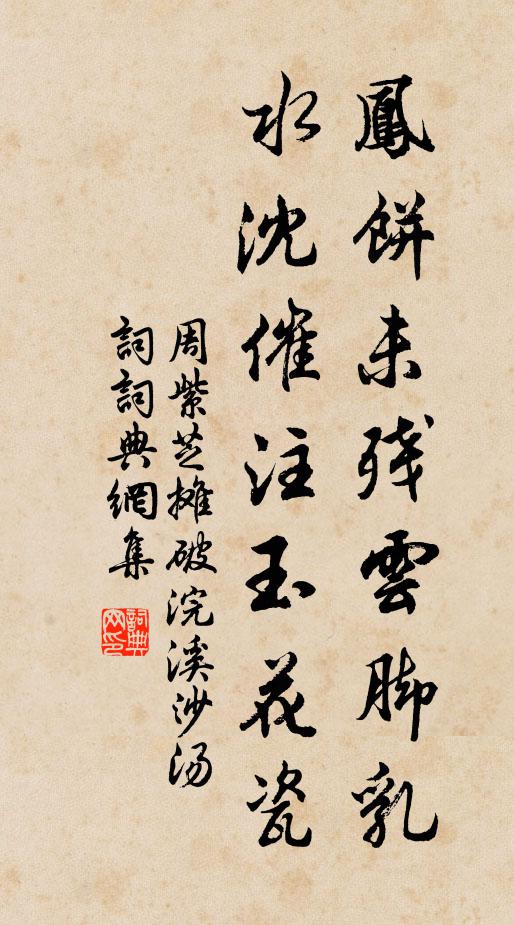 鳳餅未殘雲腳乳
水沈催注玉花瓷
周紫芝攤破浣溪沙湯
詞詞典網集
詞典
网印